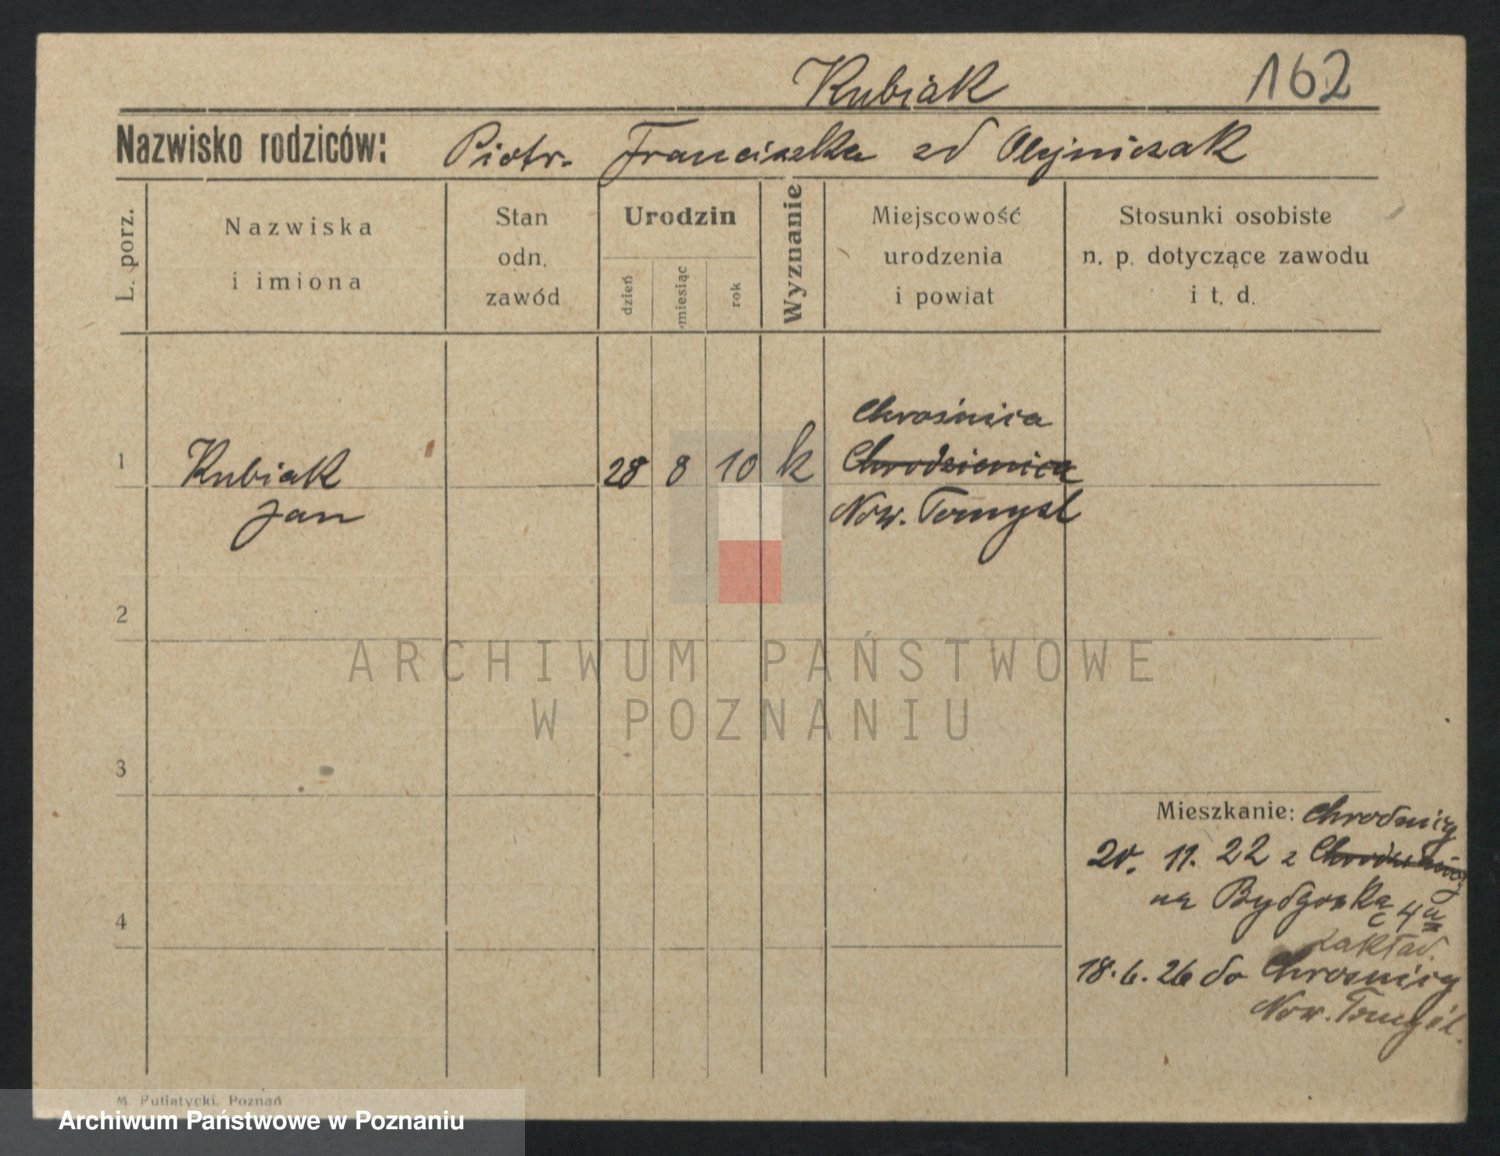 Kubiak 162
Nazwisko rodziców: Piotr. Franciszka zd Olejniczak
L. porz.
Nazwiska
i imiona
Stan
odn.
zawód
Urodzin
dzień
miesiąc
rok
Wyznanie
Miejscowość
urodzenia
i powiat
Stosunki osobiste
n. p. dotyczące zawodu
i t. d.
Chrośnica
1 Kubiak 28 8 10 k Chrodzienica
Jan Now. Tomyśl
2
ARCHIWUM PAŃSTWOWE
W POZNANIU
3
Mieszkanie: Chrośnicy
20. 11. 22 z
na Bydgoska 4a
4
zakład.
18. 6. 26 do Chrosnicy
Now. Tomyśl.
M. Putiatycki, Poznań
Archiwum Państwowe w Poznaniu